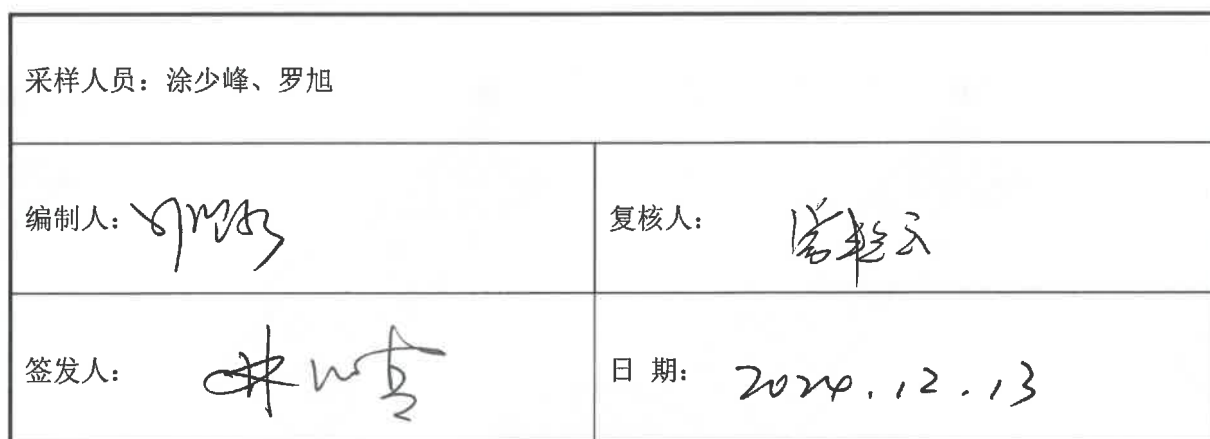 采样人员：涂少峰、罗旭
编制人：
复核人：
签发人：
日 期： 2024.12.13